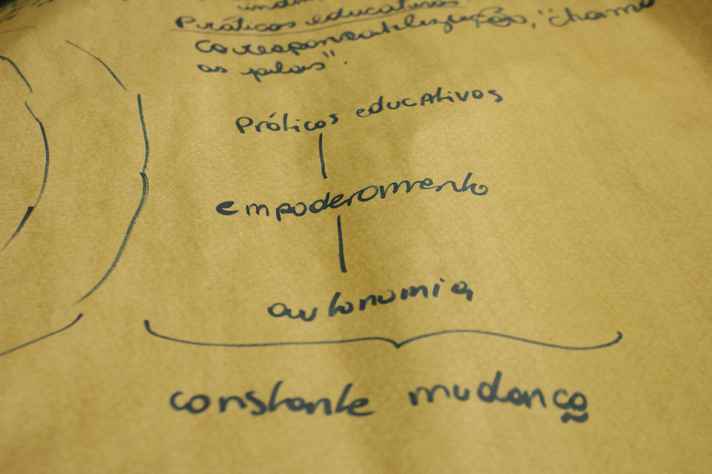 Práticas educativas
corresponsabilização, "chama
os pelos".
Práticas educativas
empoderamento
autonomia
constante mudança